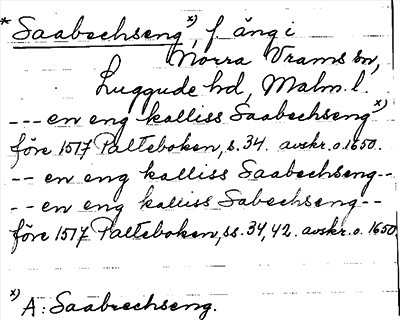 * Saabechseng x), f. äng i
Norra Vrams sn,
Luggude hd, Malm. l.
--- en eng kalliss Saabechseng x)
före 1517 Palteboken, s. 34. avskr. o. 1650.
-- en eng kalliss Saabechseng --
-- en eng kalliss Sabechseng --
före 1517 Palteboken, ss. 34, 42. avskr. o. 1650.
x) A: Saabrechseng.